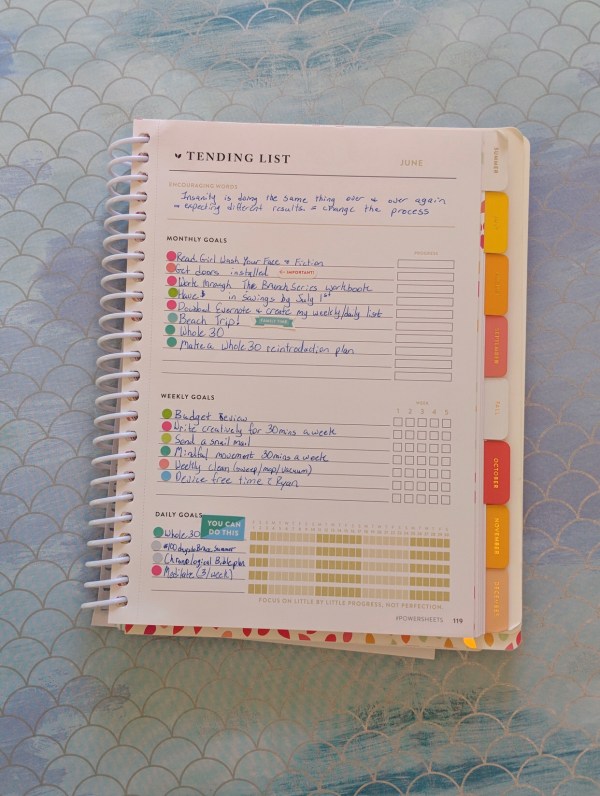 TENDING LIST
JUNE
ENCOURAGING WORDS
Insanity is doing the same thing over & over again
& expecting different results = change the process
MONTHLY GOALS
PROGRESS
Read Girl Wash Your Face & Fiction
Get doors installed IMPORTANT!
Work through The Brunch Series workbook
Have $ in savings by July 1st
Download Evernote & create my weekly/daily list
Beach Trip!
Whole 30
Make a whole 30 reintroduction plan
WEEKLY GOALS
WEEK
1 2 3 4 5
Budget Review
Write creatively for 30mins a week
Send a snail mail
Mindful movement 30mins a week
Weekly clean (sweep/mop/vacuum)
Device free time Ryan
DAILY GOALS
YOU CAN
DO THIS
Whole 30
Chronological Bible plan
Meditate (3/week)
FOCUS ON LITTLE BY LITTLE PROGRESS, NOT PERFECTION.
#POWERSHEETS 119
SUMMER
JULY
AUGUST
SEPTEMBER
FALL
OCTOBER
NOVEMBER
DECEMBER